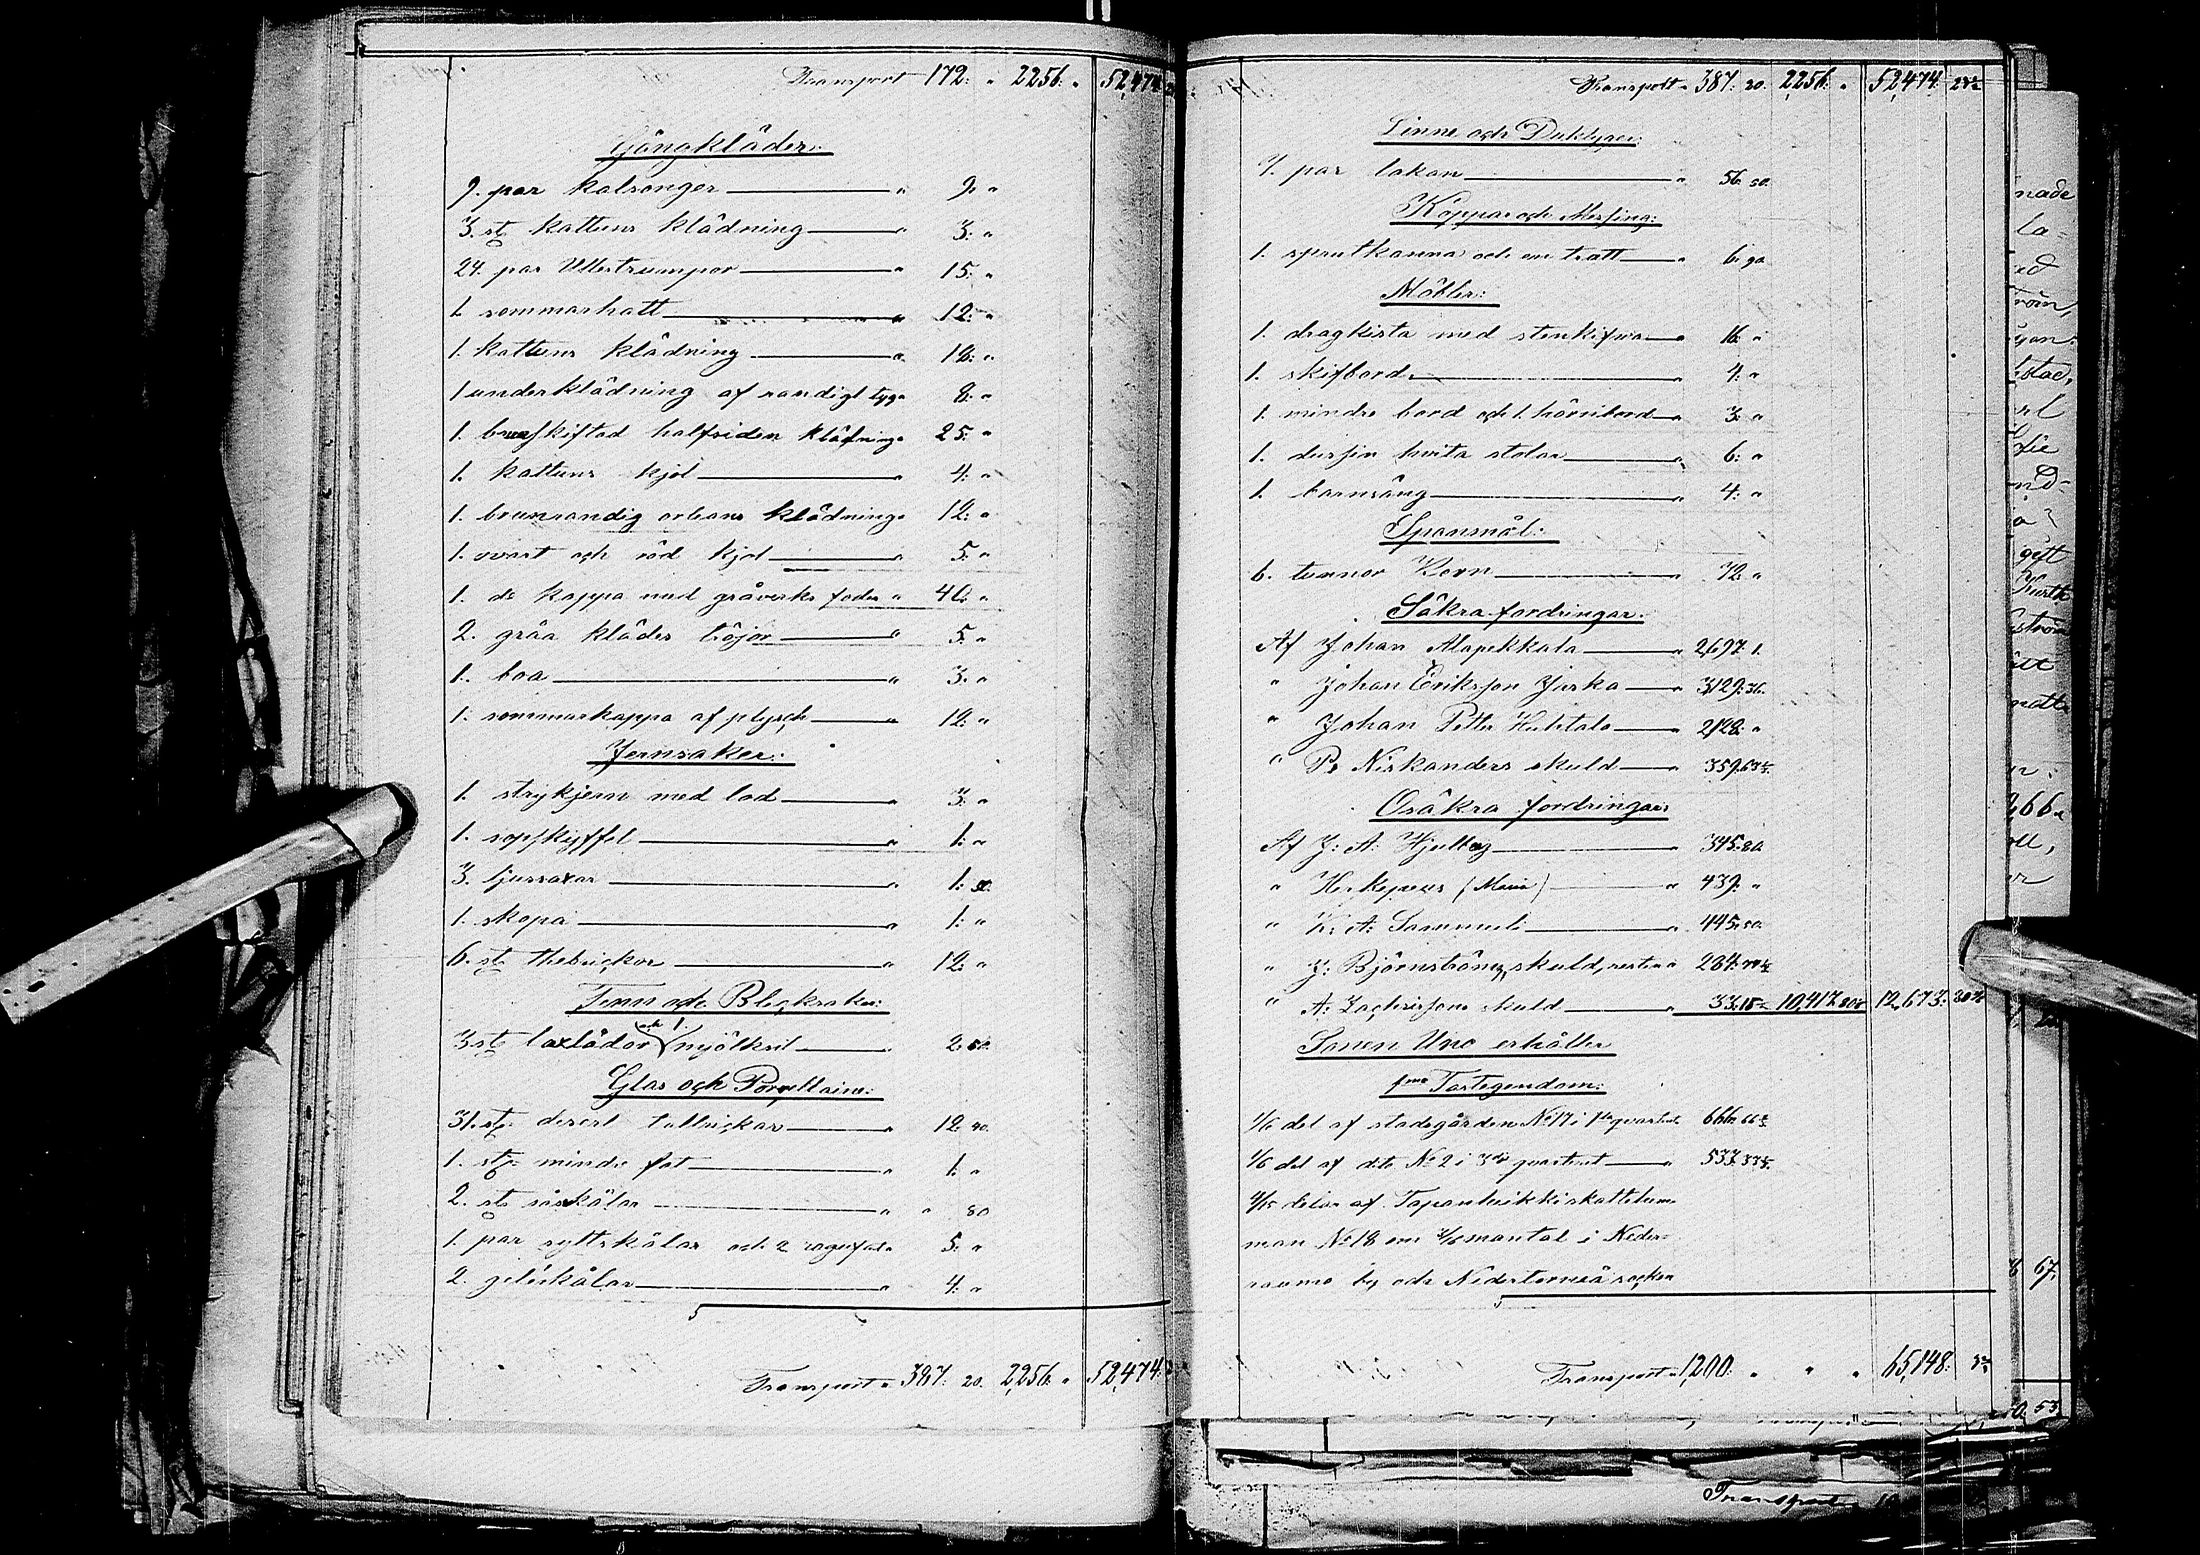 Transport 172: " 2256: " 52,474:
Gångkläder:
9. par kalsonger " 9. "
3. st kattuns klädning " 3: "
24. par Ullestrumpor " 15: "
1. sommarhatt " 12: "
1. kattuns klädning " 18: "
1 underklädning af randigt tyg " 8: "
1. brunskiftad halfsiden klädning " 25: "
1. kattuns kjol " 4: "
1. brunrandig orleans klädning " 12: "
1. svart och röd kjol " 5: "
1. do kappa med gråverks foder " 40. "
2. gråa kläder tröjor " 5: "
1. boa " 3. "
1. sommarkappa af plysch " 12: "
Jernsaker:
1. strykjern med lod " 3: "
1. sopskyffel " 1: "
3. ljussaxar " 1: 50.
1. skopa " 1: "
6. st thebrickor " 12: "
Tenn och Blecksaker:
3 st laxlådor och 1. mjölksil " 2: 50.
Glas och Porcellaine:
31. st. desert tallrickar " 12. 40.
1. st. mindre fat " 1: "
2. st såskålar " " 80
1. par syltskålar och 2 " 5: "
2. geléskålar " 4: "
Transport " 387. 20. 2,256: " 52,474:
Transport " 387: 20. 2,256: " 52,474:
Linne och Duktyger:
7. par lakan " 56. 50.
Koppar och Messing:
1. sprutkanna och en tratt " 6. 90.
Möbler:
1. dragkista med stenskifva " 16. "
1. skifbord " 4: "
1. mindre bord och 1. hörnbord " 3: "
1. dussin hvita stolar " 6: "
1. barnsäng " 4: "
Spanmål:
6. tunnor Korn " 72: "
Säkra fordringar:
Af Johan Alapekkala " 2,697. 1.
" Johan Eriksson " 3129. 36.
" Johan Petter Huhtala " 2,128: "
" Niskanders skuld " 359. 63
Osäkra fordringar
Af J: A: " 345. 80.
" (Maria) " 439. "
" K: A: Sammeli " 445. 50.
" J: Björnströms skuld, resten " 284.
" A: Zachrissons skuld " 33. 15 10,417. 12,673:
Sonen Uno erhåller
Fastegendom:
1/6 del af stadsgården No 17 i 1sta qvarteret 666. 66
1/6 del af dito No 2 i 3dje qvarteret " 533. 33
delar af Tapanheikki skattehem-
man No 18 om mantal i Neder-
by och Nedertorneå socken
Transport " 1,200: " " " 65,148:
Transport